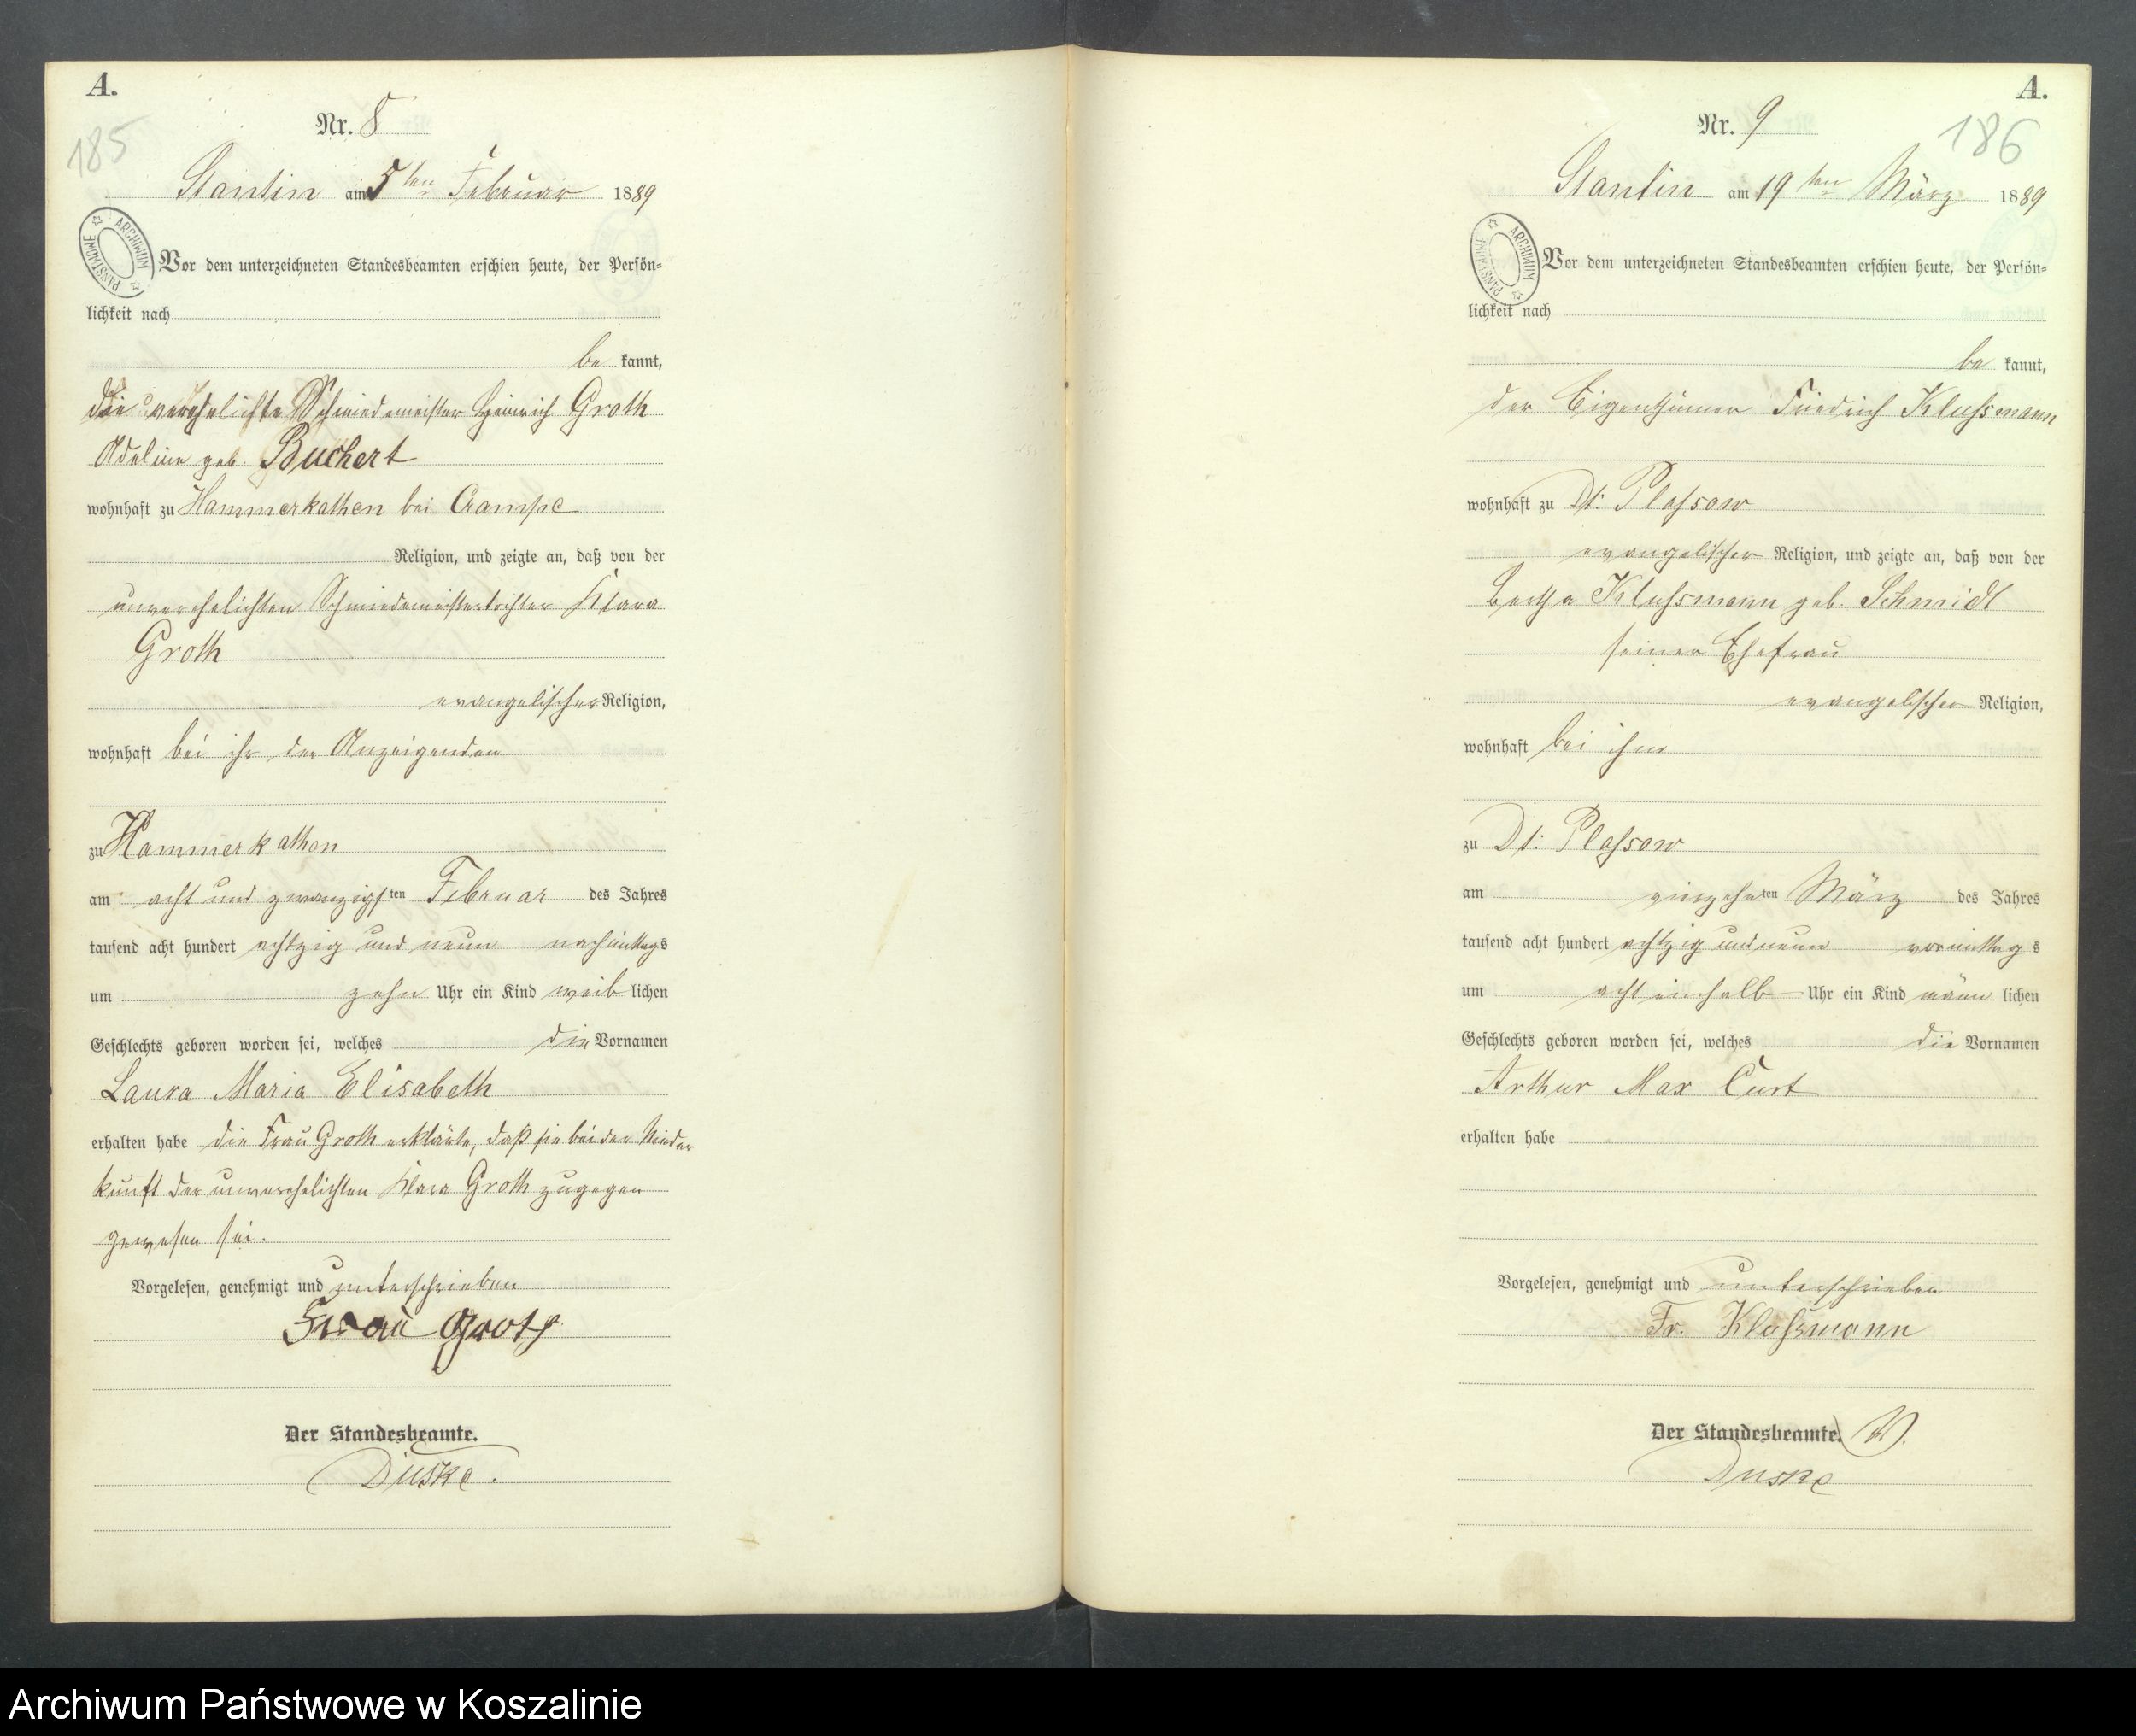 A.
185
Nr. 8
Stantin am 5ten Februar 1889
ARCHIWUM PAŃSTWOWE
Vor dem unterzeichneten Standesbeamten erschien heute, der Persön-
lichkeit nach
be kannt,
die verehelichte Schmiedemeister Heinrich Groth
Adeline geb. Buchert
wohnhaft zu Hammerkathen bei Crampe
Religion, und zeigte an, daß von der
unverehelichten Schmiedemeistertochter Klara
Groth
evangelischer Religion,
wohnhaft bei ihr der Anzeigenden
zu Hammerkathen
am acht und zwanzigsten Februar des Jahres
tausend acht hundert achtzig und neun nachmittags
um zehn Uhr ein Kind weib lichen
Geschlechts geboren worden sei, welches die Vornamen
Laura Maria Elisabeth
erhalten habe die Frau Groth erklärte, daß sie bei der Nieder
kunft der unverehelichten Klara Groth zugegen
gewesen sei.
Vorgelesen, genehmigt und unterschrieben
Frau Groth
Der Standesbeamte.
Duske.
A.
186
Nr. 9
Stantin am 19ten März 1889
ARCHIWUM PAŃSTWOWE
Vor dem unterzeichneten Standesbeamten erschien heute, der Persön-
lichkeit nach
be kannt,
der Eigenthümer Friedrich Klußmann
wohnhaft zu Dt: Plassow
evangelischer Religion, und zeigte an, daß von der
Bertha Klußmann geb. Schmidt
seiner Ehefrau
evangelischer Religion,
wohnhaft bei ihm
zu Dt: Plassow
am vierzehnten März des Jahres
tausend acht hundert achtzig und neun vormittags
um acht einhalb Uhr ein Kind männ lichen
Geschlechts geboren worden sei, welches die Vornamen
Arthur Max Curt
erhalten habe
Vorgelesen, genehmigt und unterschrieben
Fr. Klußmann
Der Standesbeamte.
Duske
Archiwum Państwowe w Koszalinie